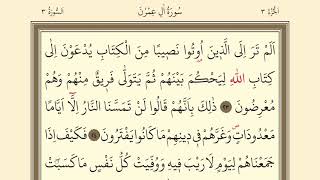 اَلْجُزْءُ ٣
سُورَةُ اٰلِ عِمْرٰنَ
اَلسُّورَةُ ٣
اَلَمْ تَرَ اِلَى الَّذٖينَ اُو۫تُوا نَصٖيبًا مِنَ الْكِتَابِ يُدْعَوْنَ اِلٰى
كِتَابِ اللّٰهِ لِيَحْكُمَ بَيْنَهُمْ ثُمَّ يَتَوَلّٰى فَرٖيقٌ مِنْهُمْ وَهُمْ
مُعْرِضُونَ ﴿٢٣﴾ ذٰلِكَ بِاَنَّهُمْ قَالُوا لَنْ تَمَسَّنَا النَّارُ اِلَّٓا اَيَّامًا
مَعْدُودَاتٍ وَغَرَّهُمْ فٖي دٖينِهِمْ مَا كَانُوا يَفْتَرُونَ ﴿٢٤﴾ فَكَيْفَ اِذَا
جَمَعْنَاهُمْ لِيَوْمٍ لَا رَيْبَ فٖيهِ وَوُفِّيَتْ كُلُّ نَفْسٍ مَا كَسَبَتْ